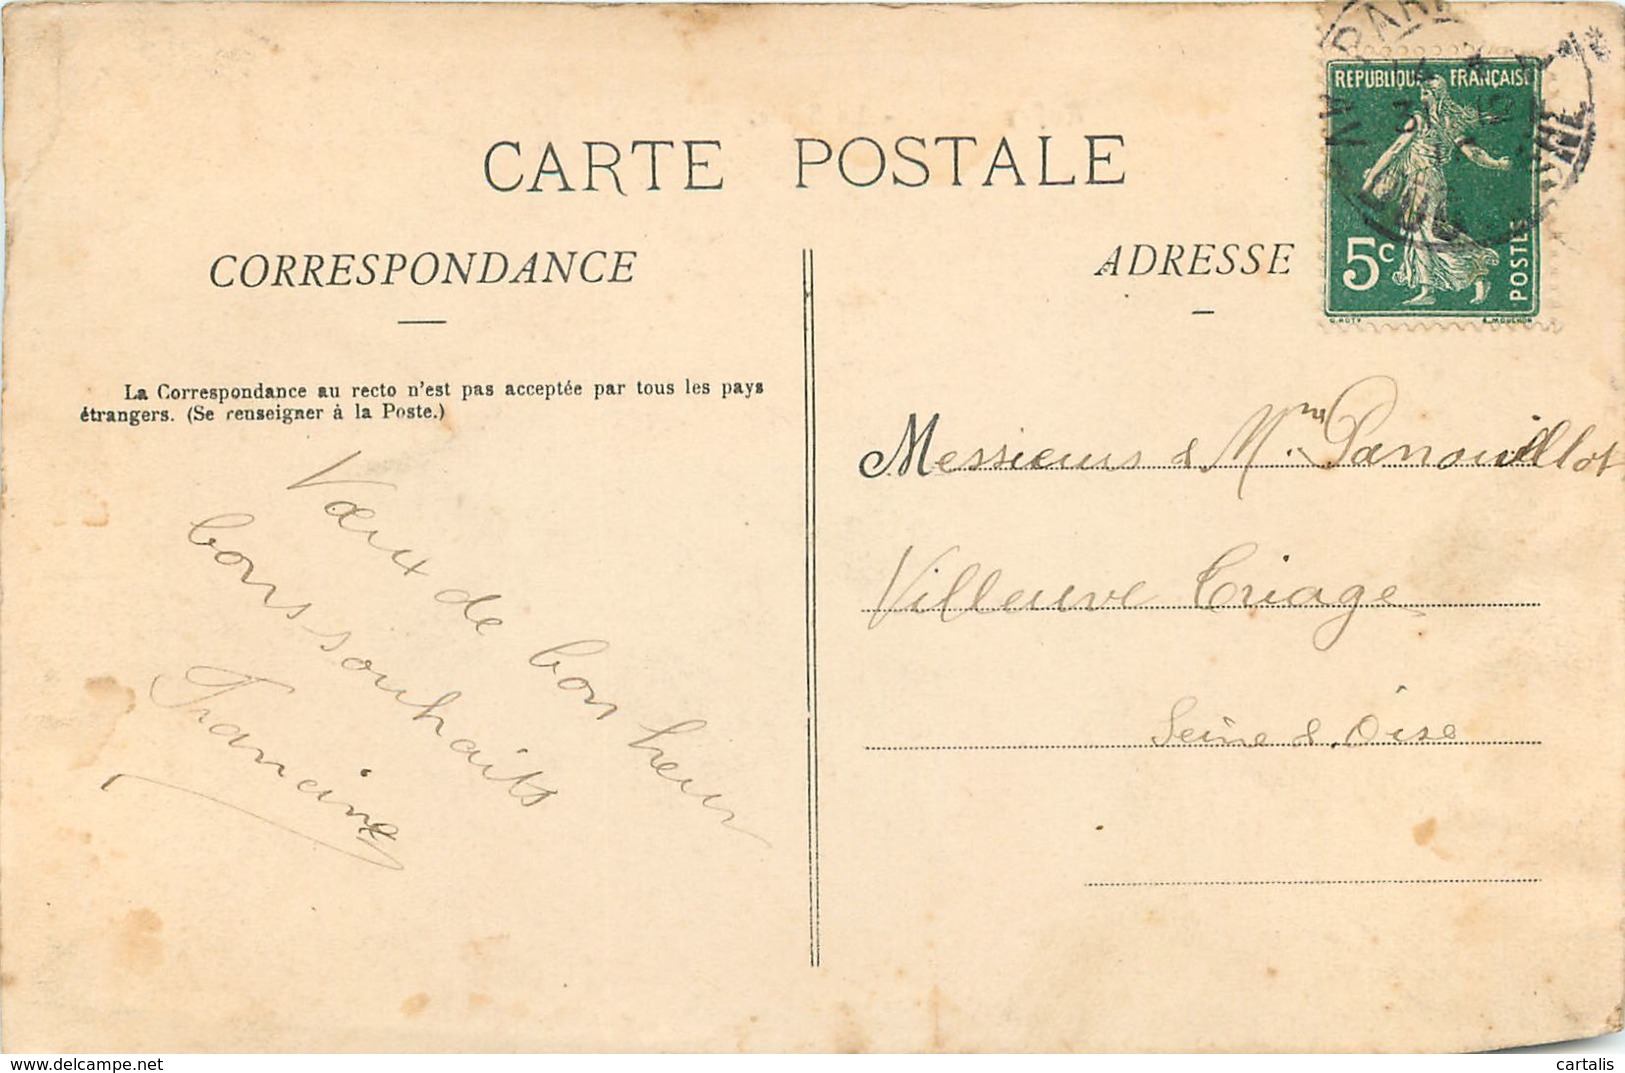 CARTE POSTALE
CORRESPONDANCE
La Correspondance au recto n'est pas acceptée par tous les pays
étrangers. (Se renseigner à la Poste.)
Vœux de bon heur
bons souhaits
Francine
ADRESSE
REPUBLIQUE FRANÇAISE
5c
POSTES
O. ROTY
L. MOUCHON
PARIS
31
Messieurs & Mme Panouillot
Villeuve Triage
Seine & Oise
cartalis